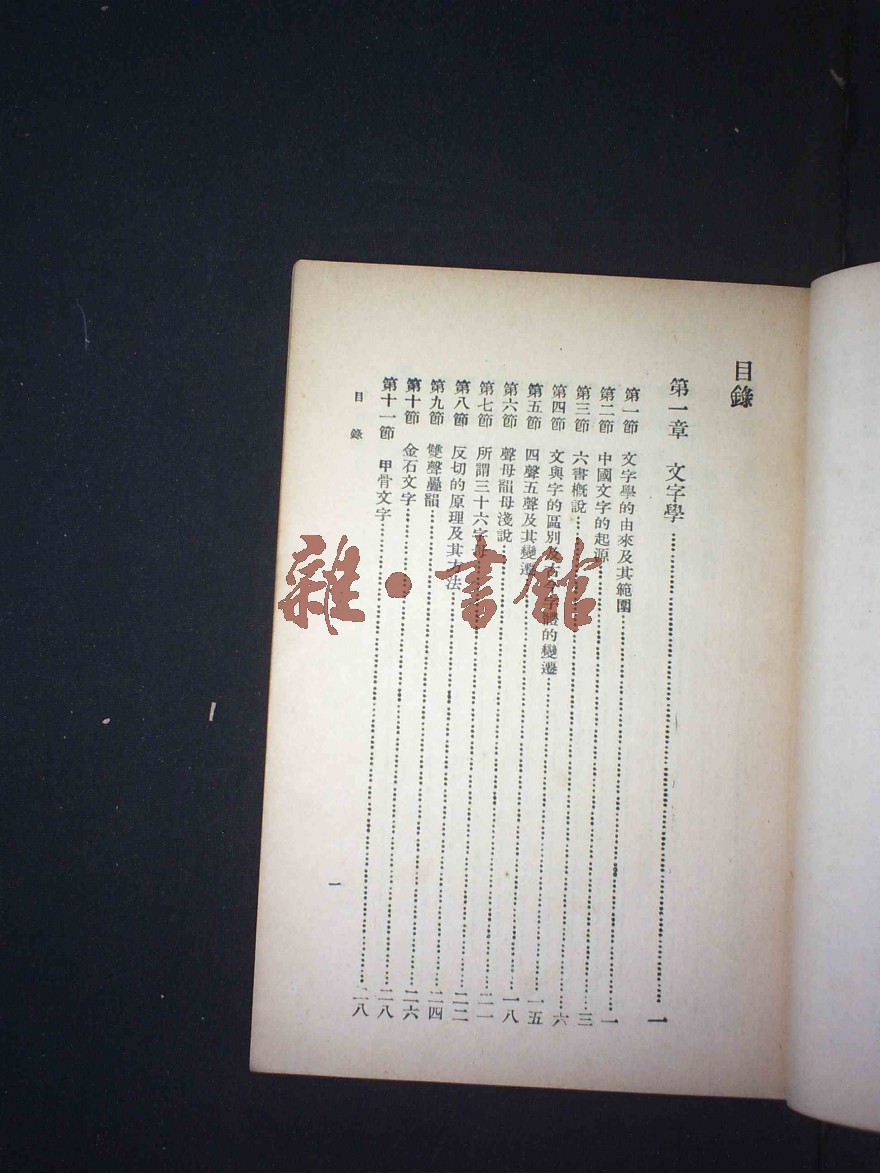 目錄
第一章 文字學……一
第一節 文字學的由來及其範圍……一
第二節 中國文字的起源……三
第三節 六書概說……六
第四節 文與字的區別及古今字體的變遷……一五
第五節 四聲五聲及其變遷……一八
第六節 聲母韻母淺說……二一
第七節 所謂三十六字母……二二
第八節 反切的原理及其方法……二四
第九節 雙聲疊韻……二六
第十節 金石文字……二八
第十一節 甲骨文字……二八
目錄
一
雜·書館